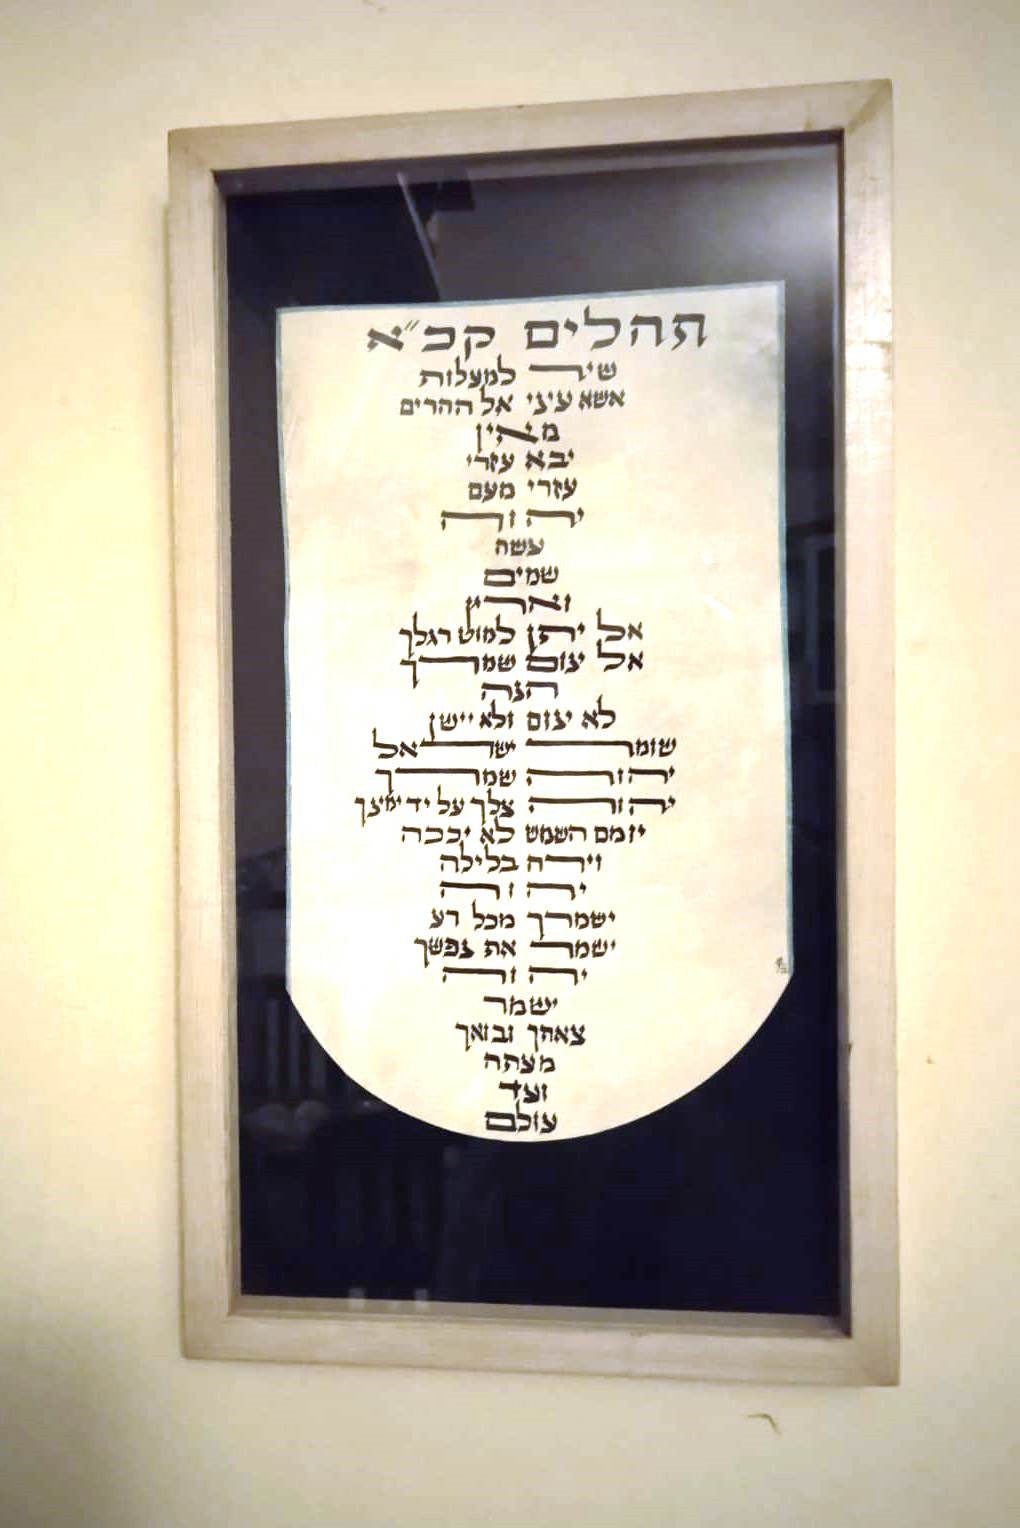 תהלים קכ״א
שיר למעלות
אשא עיני אל ההרים
מאין
יבא עזרי
עזרי מעם
יהוה
עשה
שמים
וארץ
אל יתן למוט רגלך
אל ינום שמרך
הנה
לא ינום ולא יישן
שומר ישראל
יהוה שמרך
יהוה צלך על יד ימינך
יומם השמש לא יככה
וירח בלילה
יהוה
ישמרך מכל רע
ישמר את נפשך
יהוה
ישמר
צאתך ובואך
מעתה
ועד
עולם